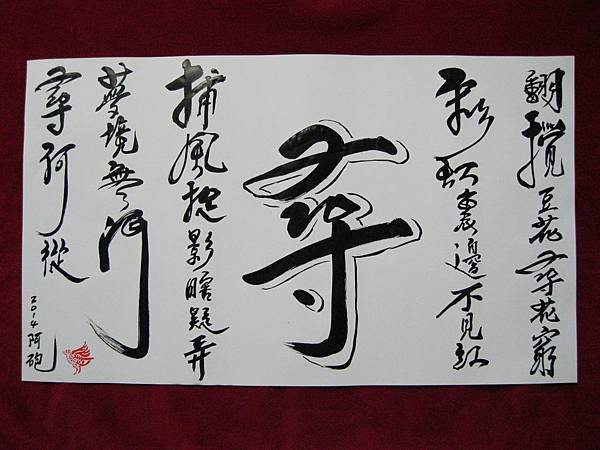 翻攪豆花尋花窮
裏邊不見紅
尋
捕風捉影瞎疑弄
夢境無門
尋何從
2014 阿砲